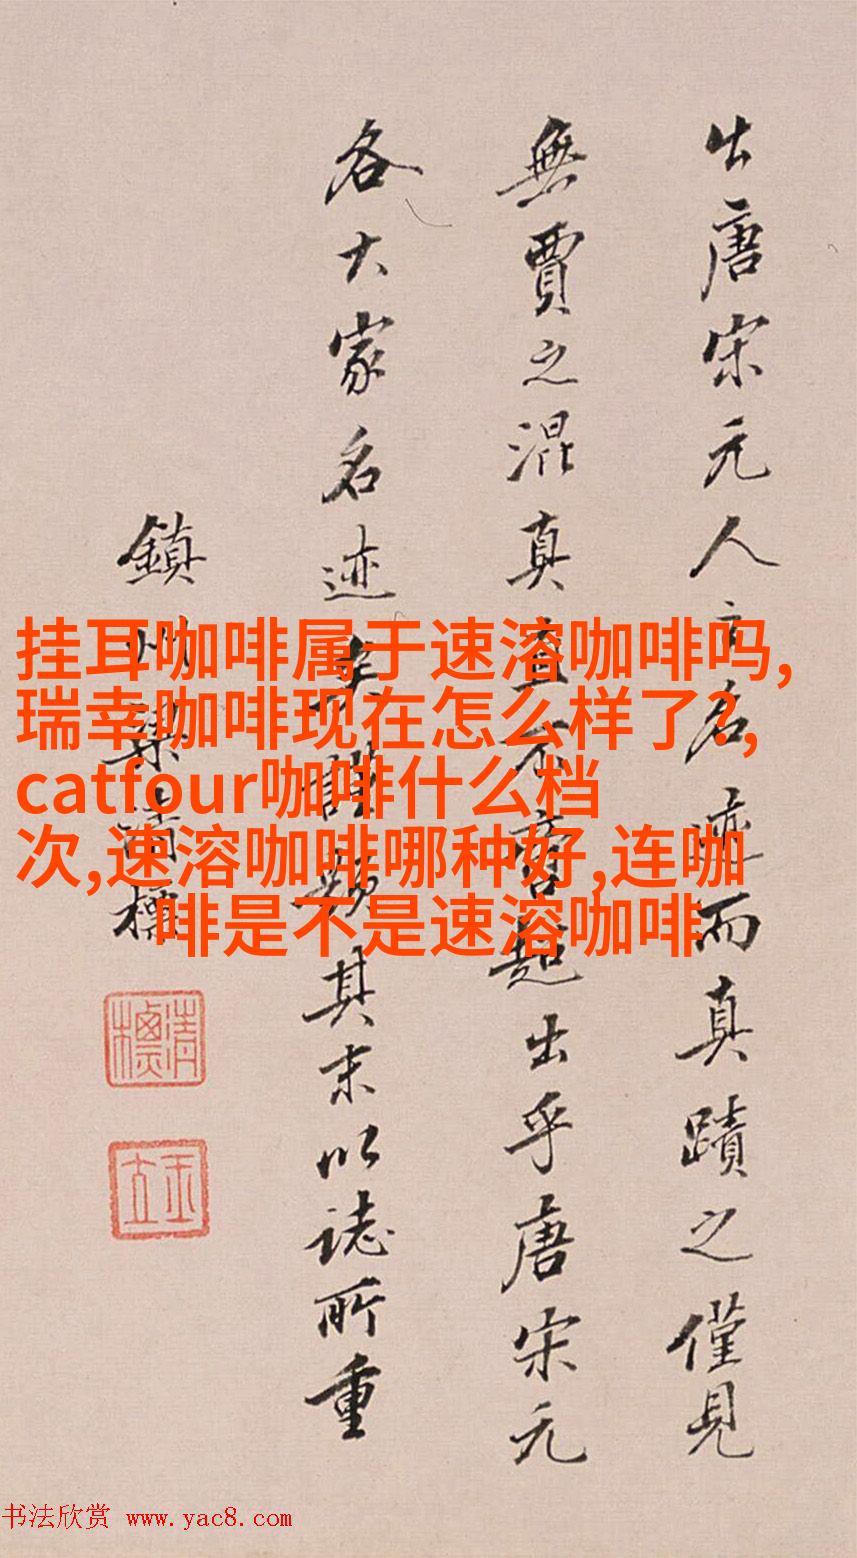 出唐宋元人之名迹而真蹟之僅見
無賈之混真不超出乎唐宋元
各大家名迹矣謹其末以誌所重
鎮州梁清標
清標
玉立
挂耳咖啡属于速溶咖啡吗,
瑞幸咖啡现在怎么样了?,
catfour咖啡什么档
次,速溶咖啡哪种好,连咖
啡是不是速溶咖啡
书法欣赏 www.yac8.com